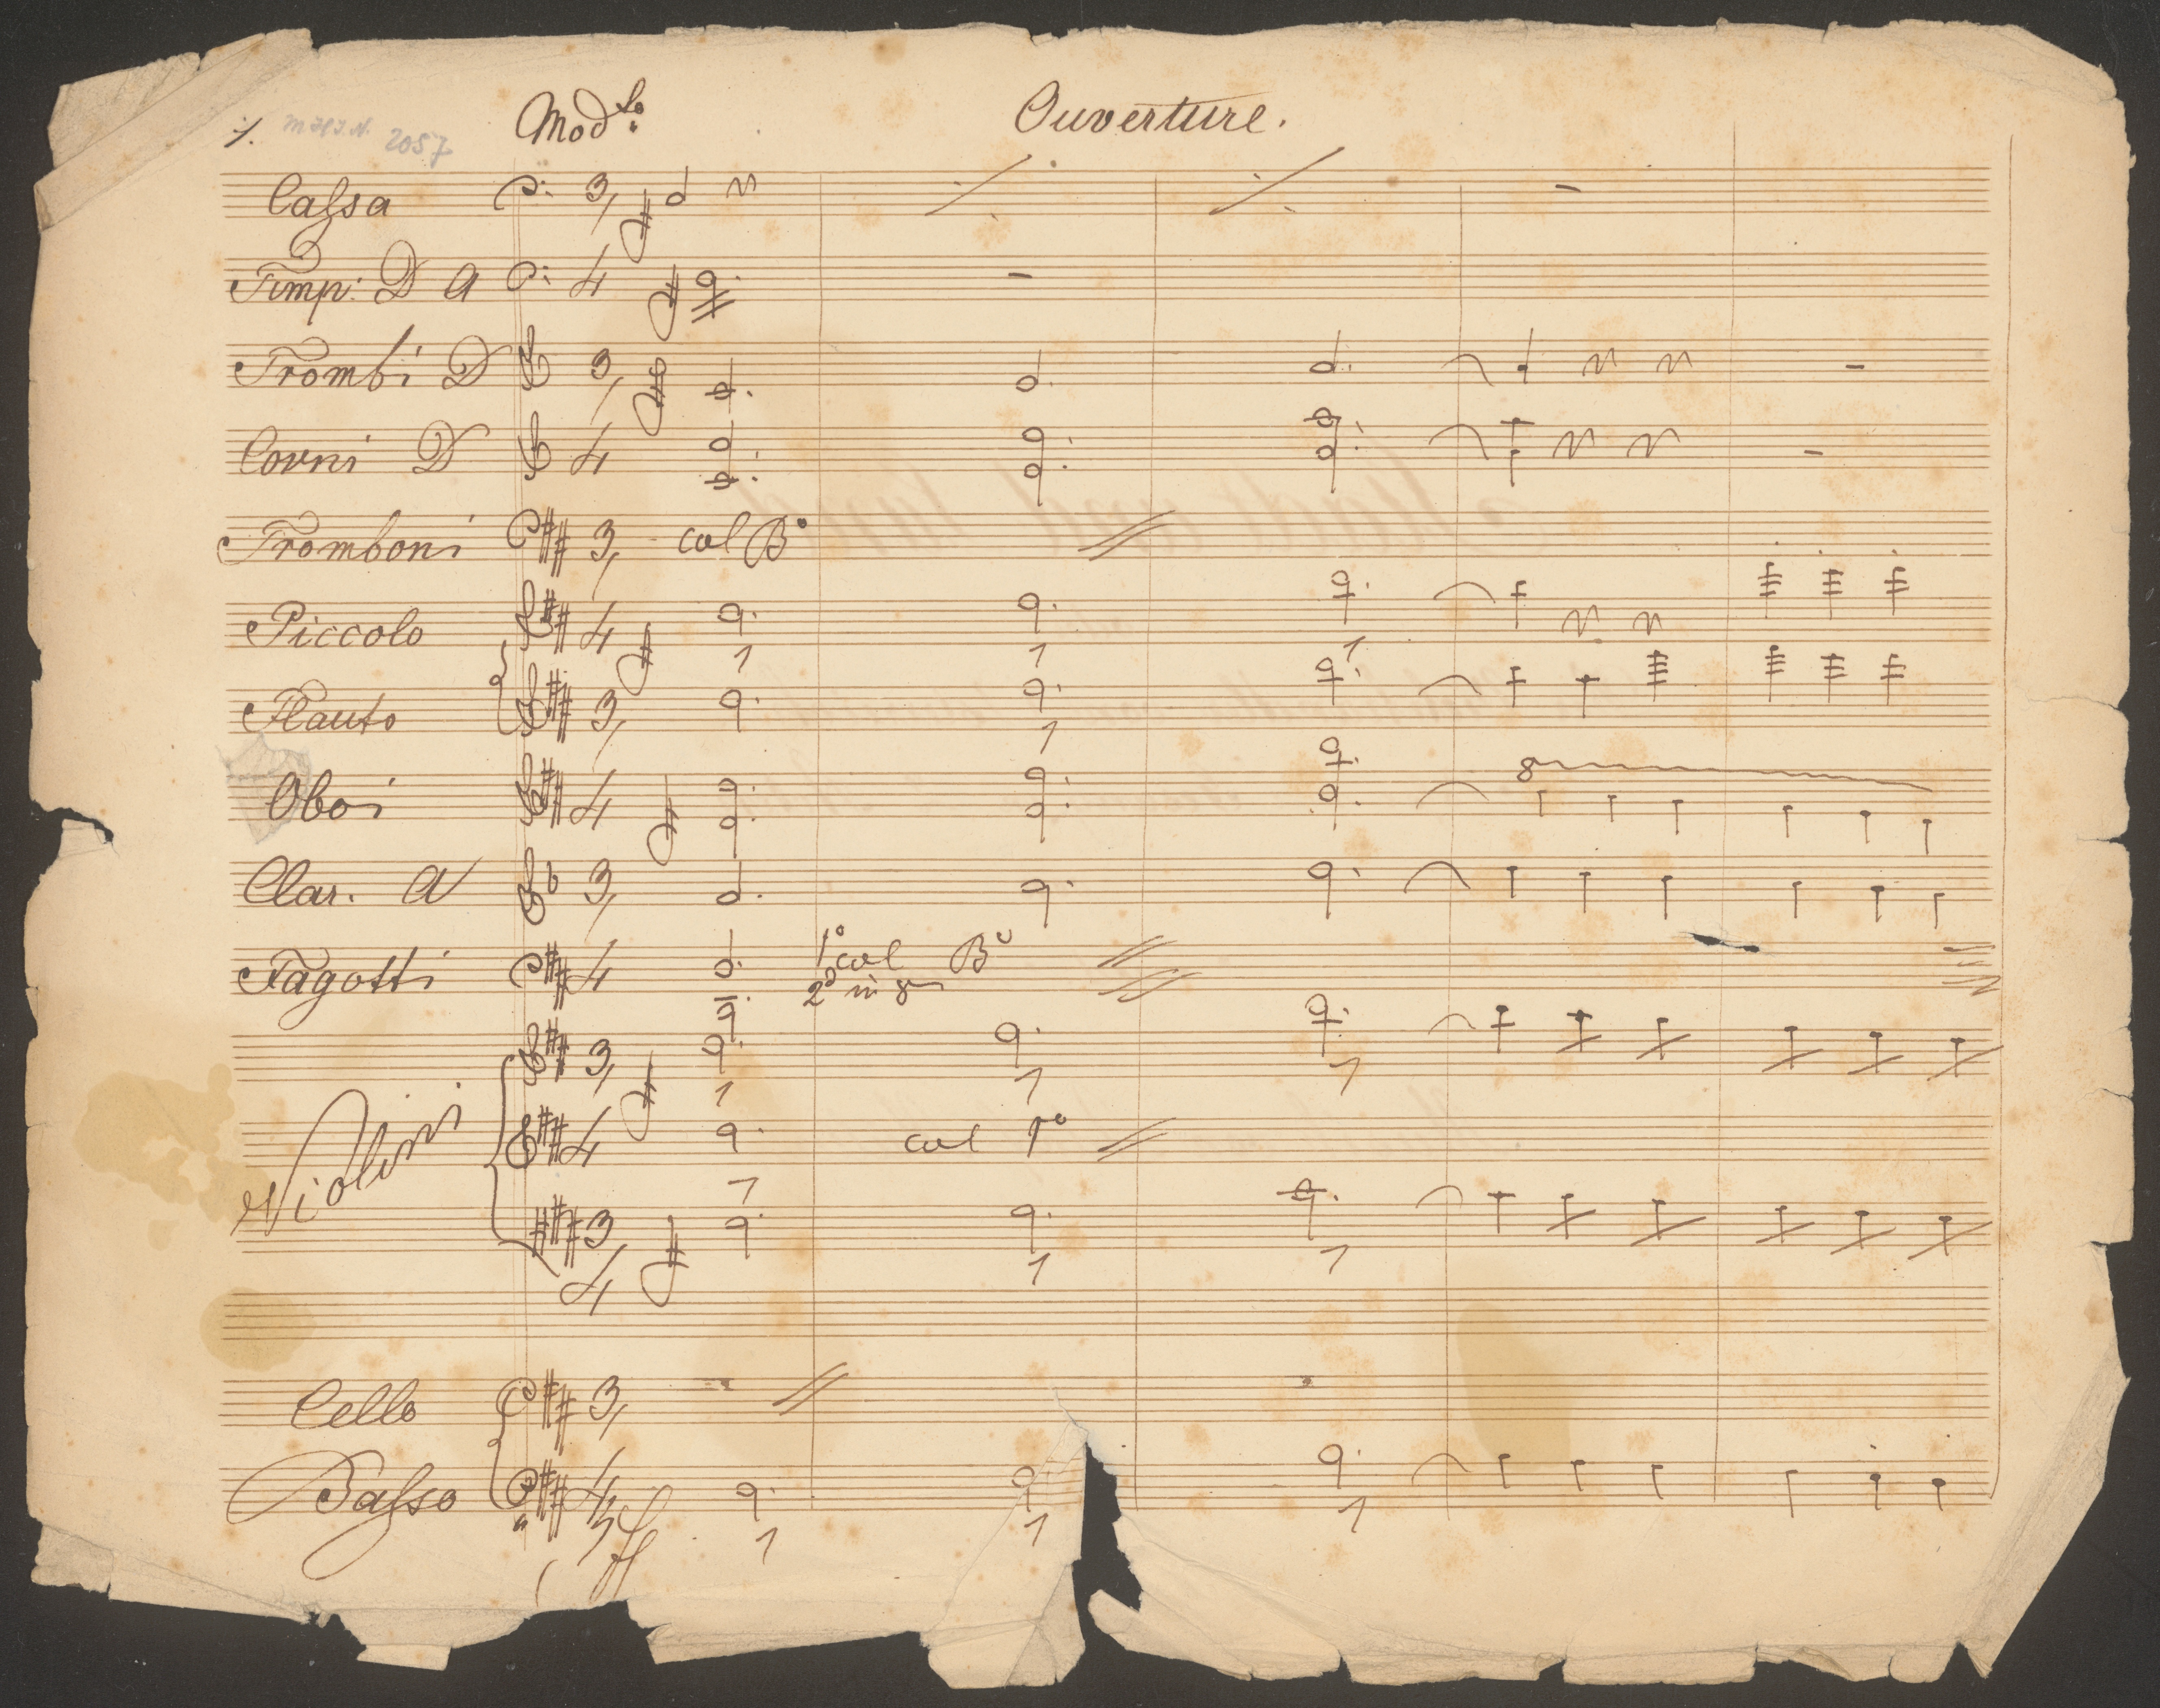 1. MHJ.N. 2057 Mod.to Ouverture.
Cassa 3/4
Timp: D A
Trombi D 3/4
Corni D
Tromboni 3/4 col Bº
Piccolo
Flauto 3/4
Oboi
Clar. A 3/4
Fagotti 1º col Bº
2º in 8
Violini 3/4
col 1º
3/4
Cello 3/4
Basso ff